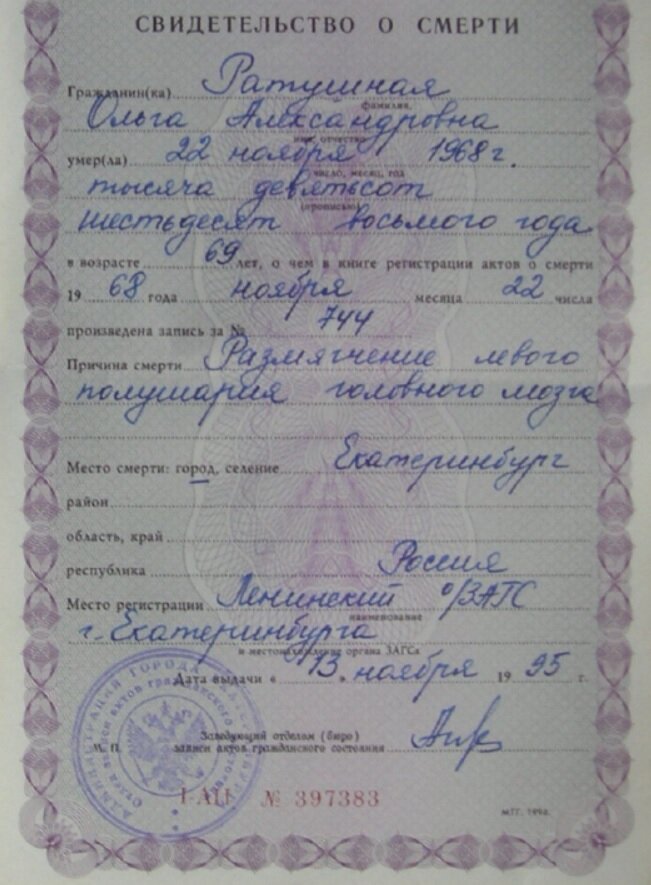 СВИДЕТЕЛЬСТВО О СМЕРТИ
Гражданин(ка) Ратушная
фамилия,
Ольга Александровна
имя, отчество
умер(ла) 22 ноября 1968 г.
число, месяц, год
тысяча девятьсот
(прописью)
шестьдесят восьмого года
в возрасте 69 лет, о чем в книге регистрации актов о смерти
19 68 года ноября месяца 22 числа
произведена запись за № 744
Причина смерти Размягчение левого
полушария головного мозга
Место смерти: город, селение Екатеринбург
район
область, край
республика Россия
Место регистрации Ленинский о/ЗАГС
наименование
г. Екатеринбурга
и местонахождение органа ЗАГСа
Дата выдачи « 13 » ноября 19 95 г.
Заведующий отделом (бюро)
М. П. записи актов гражданского состояния
I-АИ № 397383